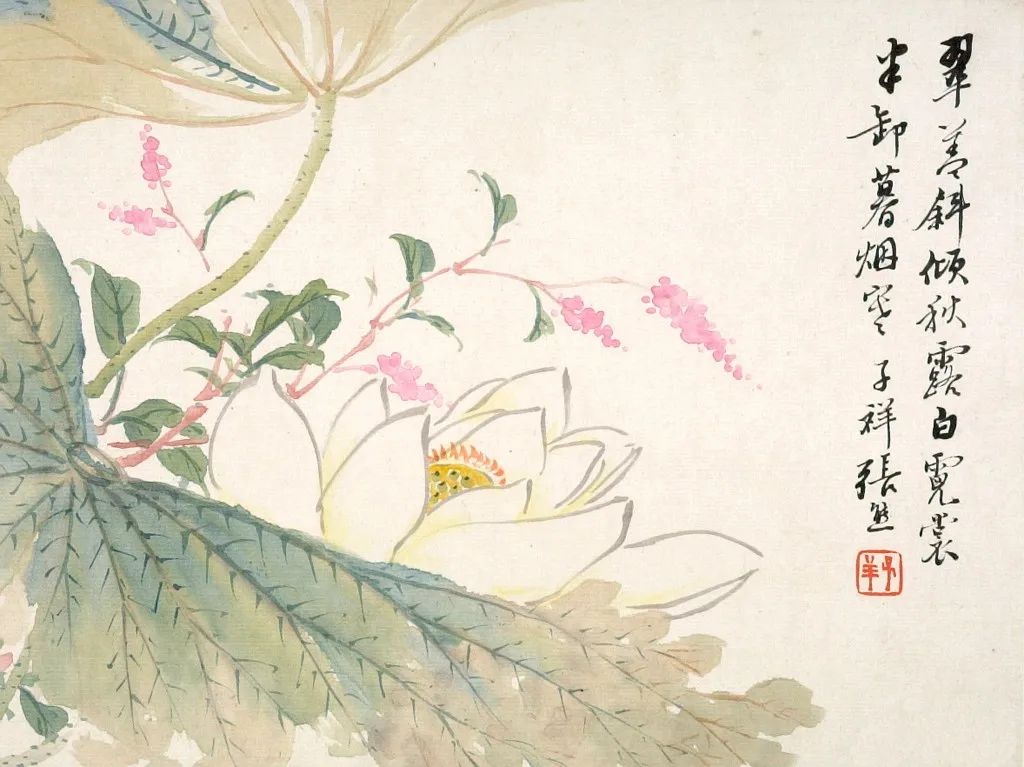 翠盖斜傾秋露白霓裳
半卸暮烟寒 子祥張熊
子羊